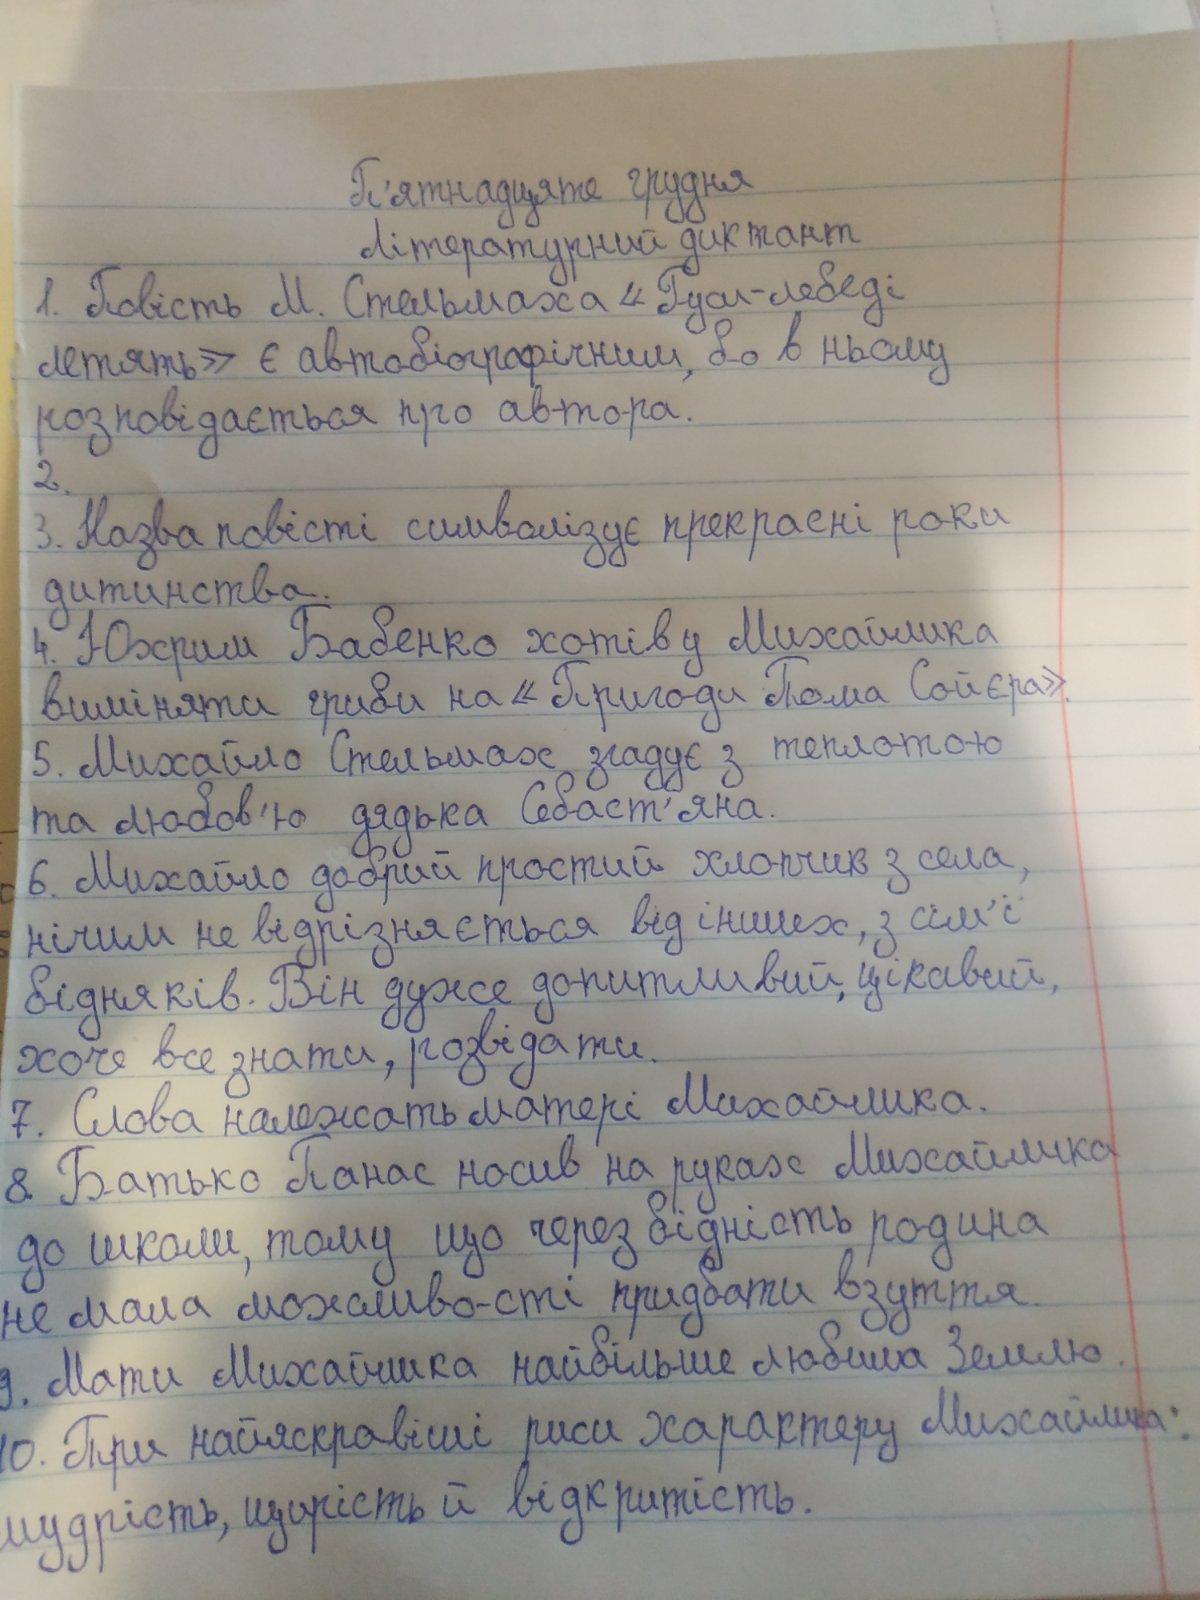 П'ятнадцяте грудня
Літературний диктант
1. Повість М. Стельмаха «Гуси-лебеді
летять» є автобіографічним, бо в ньому
розповідається про автора.
2.
3. Назва повісті символізує прекрасні роки
дитинства.
4. Юхрим Бабенко хотів у Михайлика
виміняти гриби на «Пригоди Тома Сойєра».
5. Михайло Стельмах згадує з теплотою
та любов'ю дядька Себаст'яна.
6. Михайло добрий простий хлопчик з села,
нічим не відрізняється від інших, з сім'ї
бідняків. Він дуже допитливий, цікавий,
хоче все знати, розвідати.
7. Слова належать матері Михайлика.
8. Батько Панас носив на руках Михайлика
до школи, тому що через бідність родина
не мала можливо-сті придбати взуття.
9. Мати Михайлика найбільше любила Землю.
10. Три найяскравіші риси характеру Михайлика:
мудрість, щирість й відкритість.